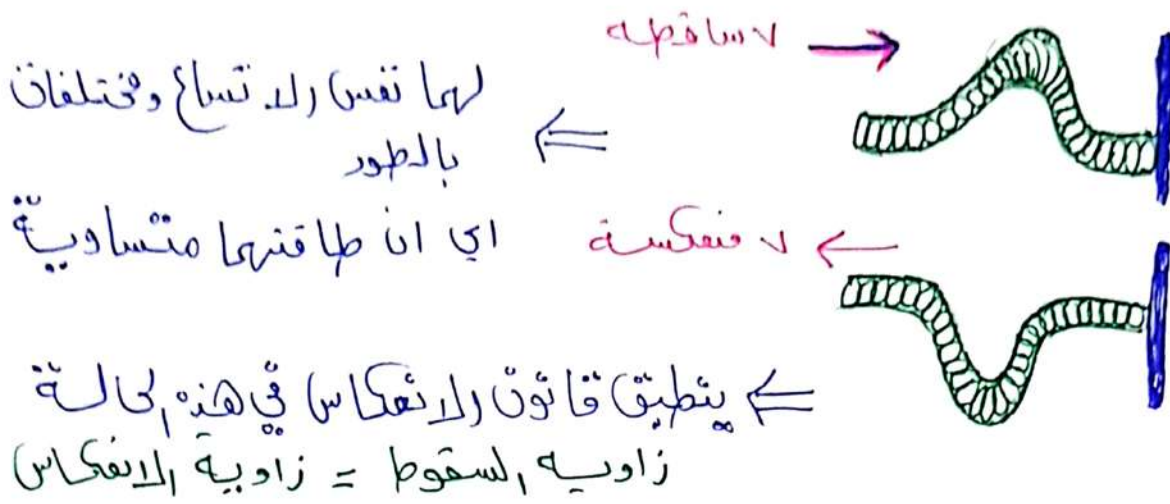 v ساقطه →
⇐ لهما نفس الاتساع ومختلفان
بالطور
v منعكسة ←
اي ان طاقتهما متساوية
⇐ ينطبق قانون الانعكاس في هذه الحالة
زاويه السقوط = زاوية الانعكاس